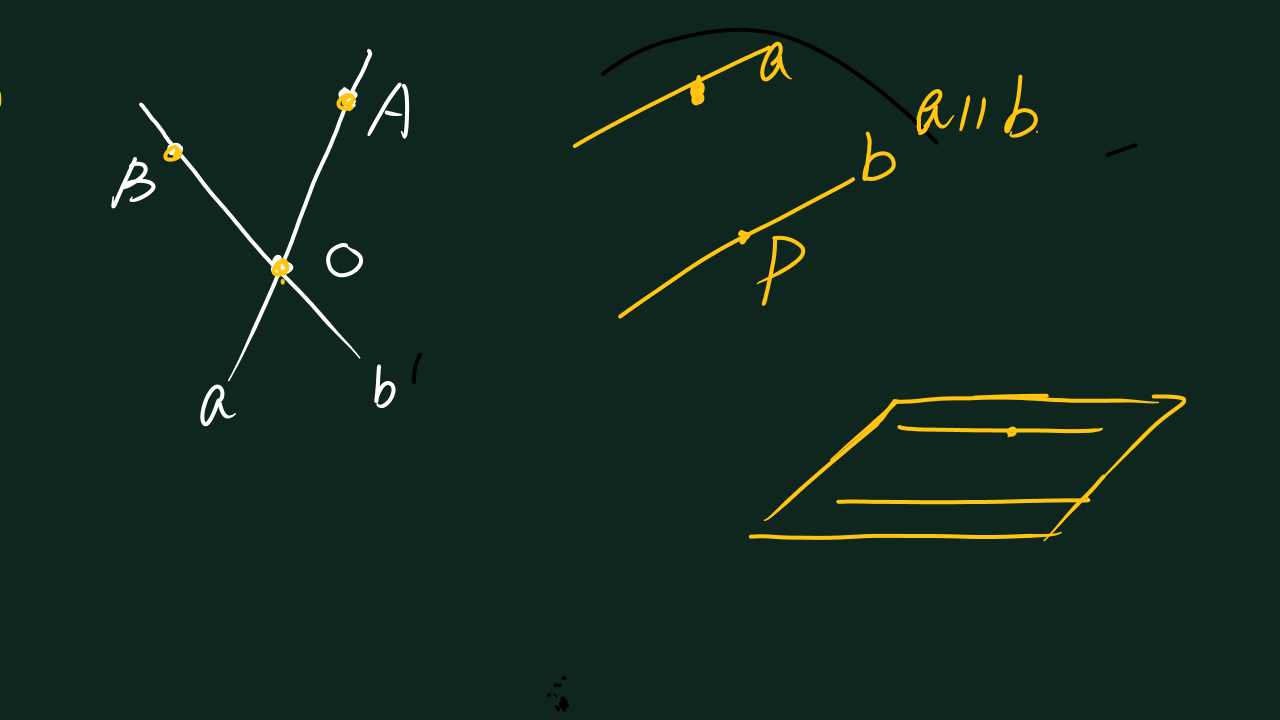 A
B
O
a
b
a
b
P
a // b